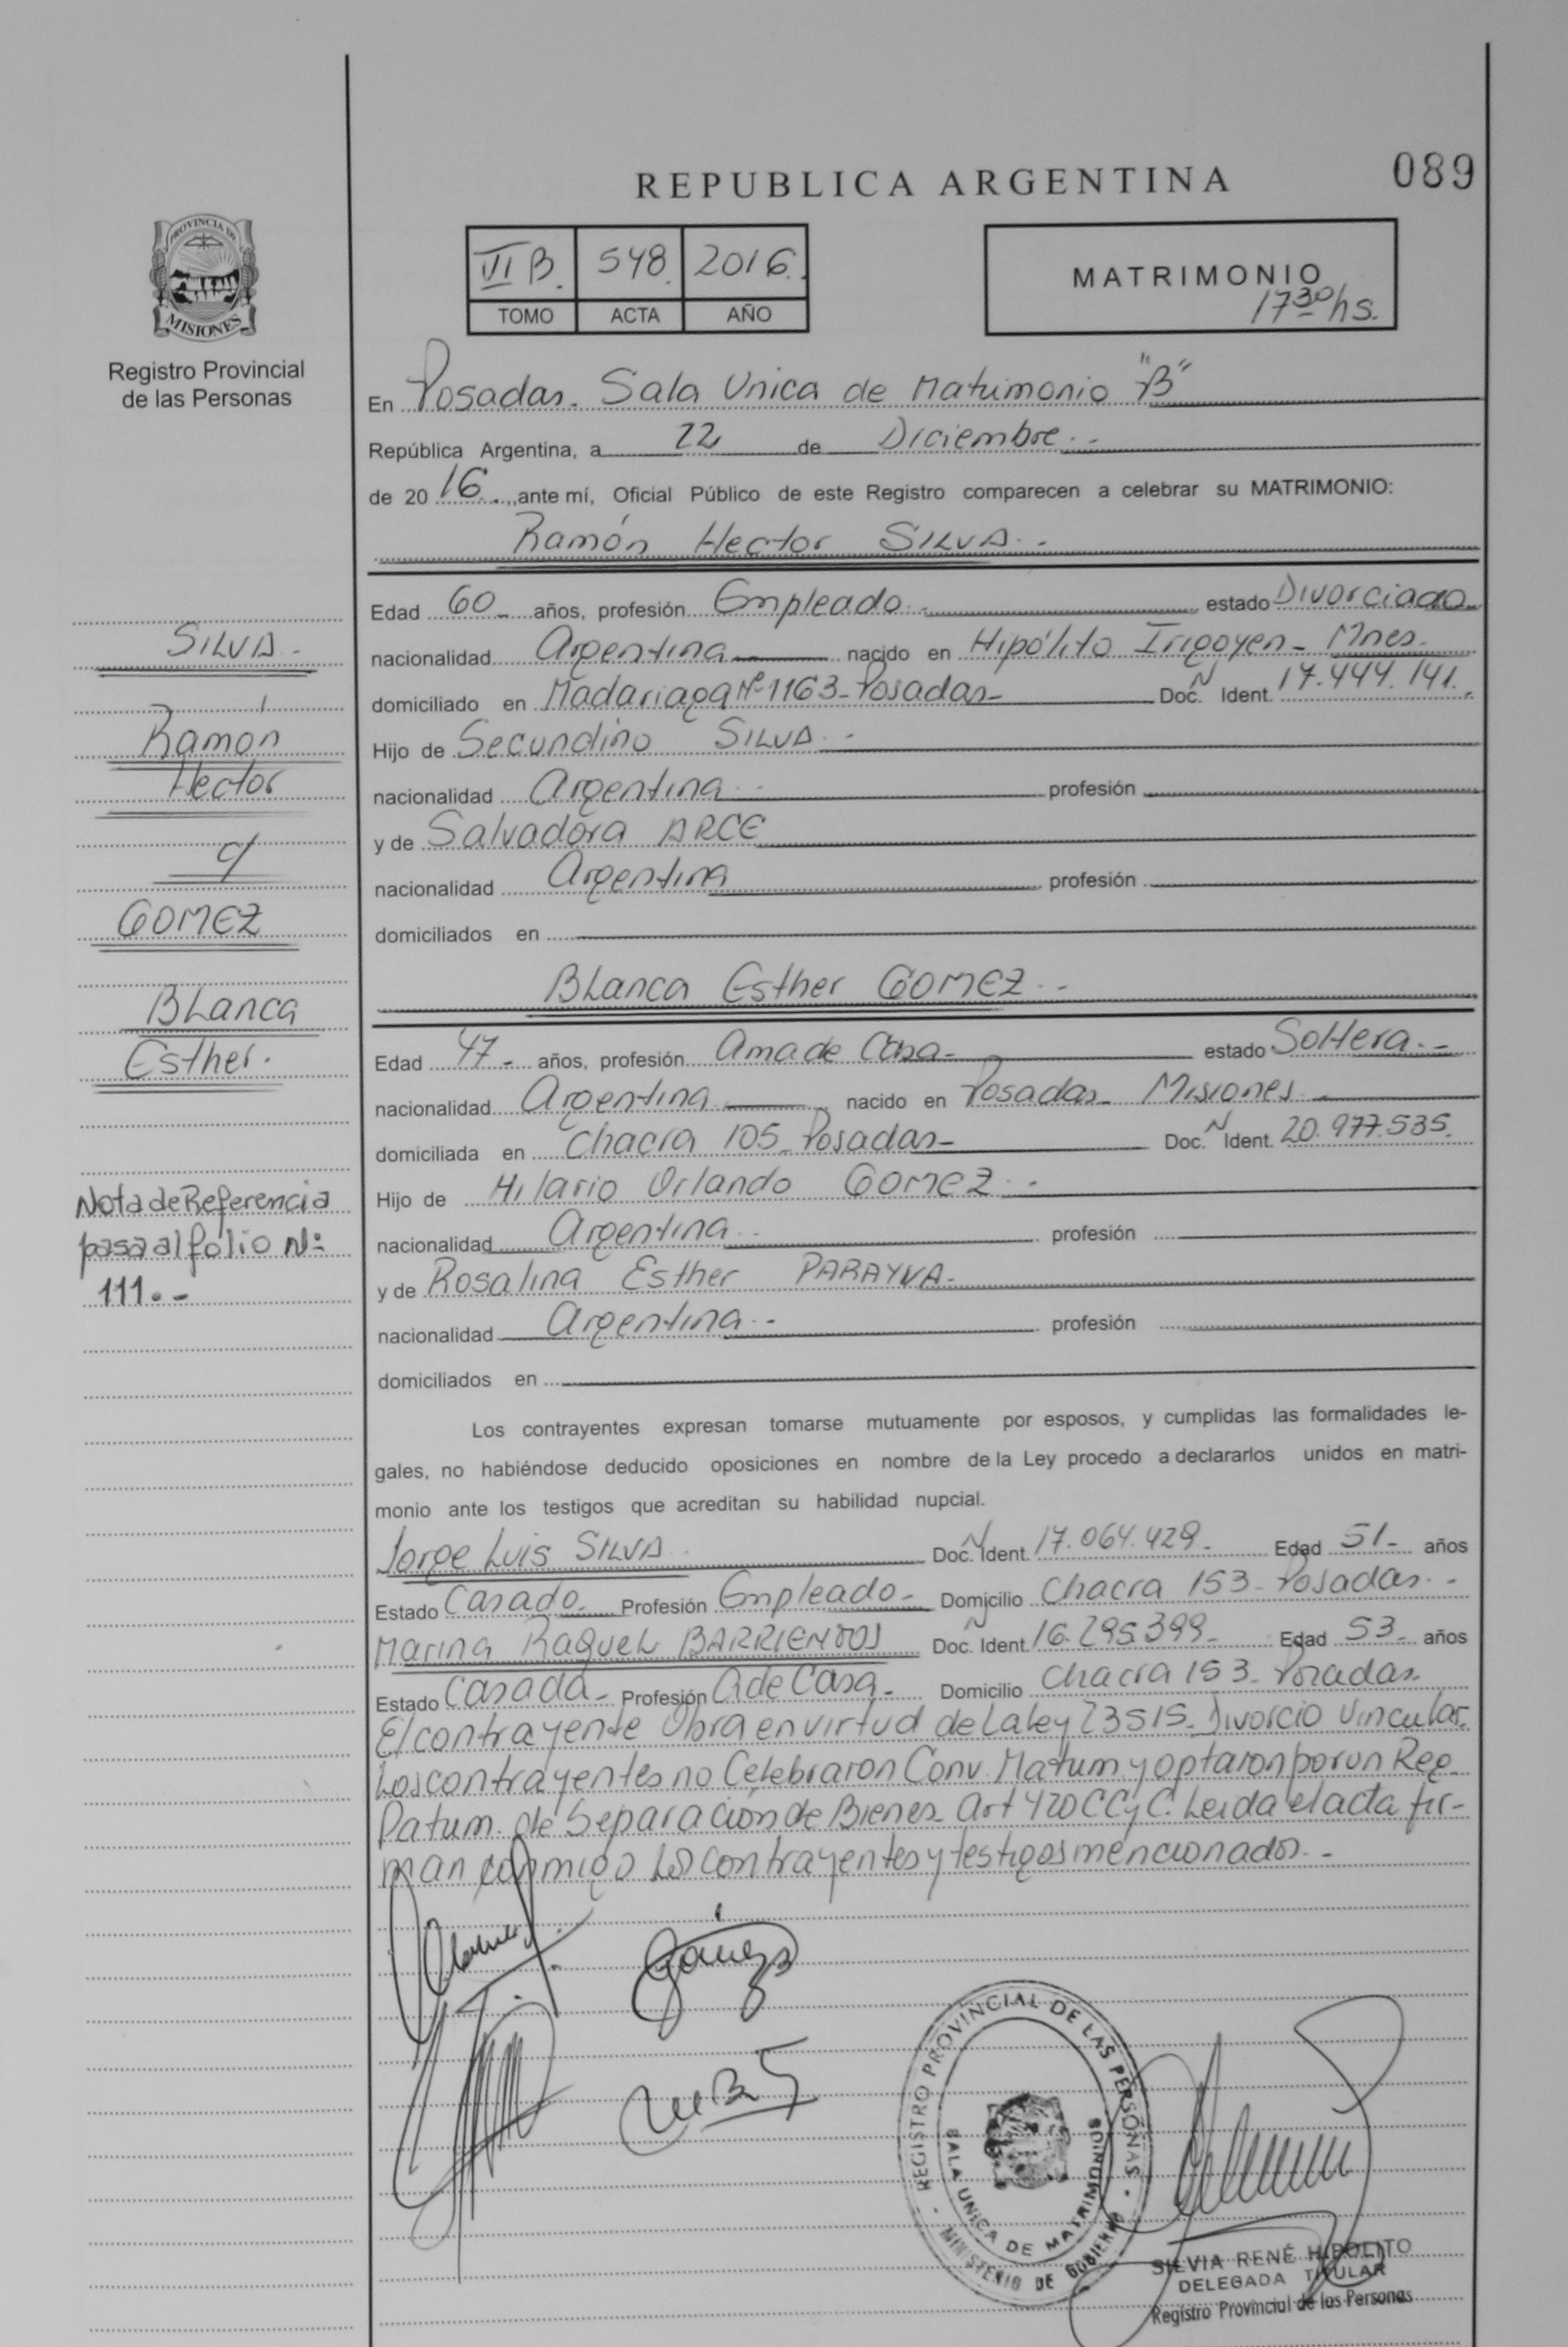 REPUBLICA ARGENTINA
089
PROVINCIA DE
MISIONES
Registro Provincial
de las Personas
VI B. 548. 2016.
TOMO ACTA AÑO
MATRIMONIO
17³⁰hs.
En Posadas. Sala Unica de Matrimonio "B"
República Argentina, a 22 de Diciembre.-
de 2016., ante mí, Oficial Público de este Registro comparecen a celebrar su MATRIMONIO:
Ramón Hector SILVA.-
Edad 60- años, profesión Empleado.- estado Divorciado-
nacionalidad Argentina nacido en Hipólito Irigoyen- Mnes.
domiciliado en Madariaga Nº 1163-Posadas- Doc. N Ident. 17.444.141.-
Hijo de Secundino SILVA.-
nacionalidad Argentina.- profesión
y de Salvadora ARCE
nacionalidad Argentina profesión
domiciliados en
Blanca Esther GOMEZ.-
Edad 47- años, profesión Ama de Casa- estado Soltera.-
nacionalidad Argentina nacido en Posadas- Misiones
domiciliada en Chacra 105-Posadas- Doc. N Ident. 20.977.535.
Hijo de Hilario Orlando GOMEZ.-
nacionalidad Argentina.- profesión
y de Rosalina Esther PARAYVA-
nacionalidad Argentina.- profesión
domiciliados en
Los contrayentes expresan tomarse mutuamente por esposos, y cumplidas las formalidades le-
gales, no habiéndose deducido oposiciones en nombre de la Ley procedo a declararlos unidos en matri-
monio ante los testigos que acreditan su habilidad nupcial.
Jorge Luis SILVA.- Doc. N Ident. 17.064.429- Edad 51- años
Estado Casado- Profesión Empleado- Domicilio Chacra 153-Posadas.-
Marina Raquel BARRIENTOS Doc. N Ident. 16.295.399- Edad 53- años
Estado Casada- Profesión A de Casa- Domicilio Chacra 153-Posadas.
El contrayente Obra en virtud de La Ley 23515-Divorcio Vincular.
Los contrayentes no Celebraron Conv. Matrim y optaron por un Reg.
Patrim. de Separación de Bienes- Art 420 CCyC. Leida el acta fir-
man conmigo Los contrayentes y testigos mencionados.-
SILVA-
Ramón
Hector
c/
GOMEZ
Blanca
Esther.
Nota de Referencia
pasa al folio Nº
111.-
REGISTRO PROVINCIAL DE LAS PERSONAS
SALA UNICA DE MATRIMONIOS
MINISTERIO DE GOBIERNO
SILVIA RENÉ HIPOLITO
DELEGADA TITULAR
Registro Provincial de las Personas